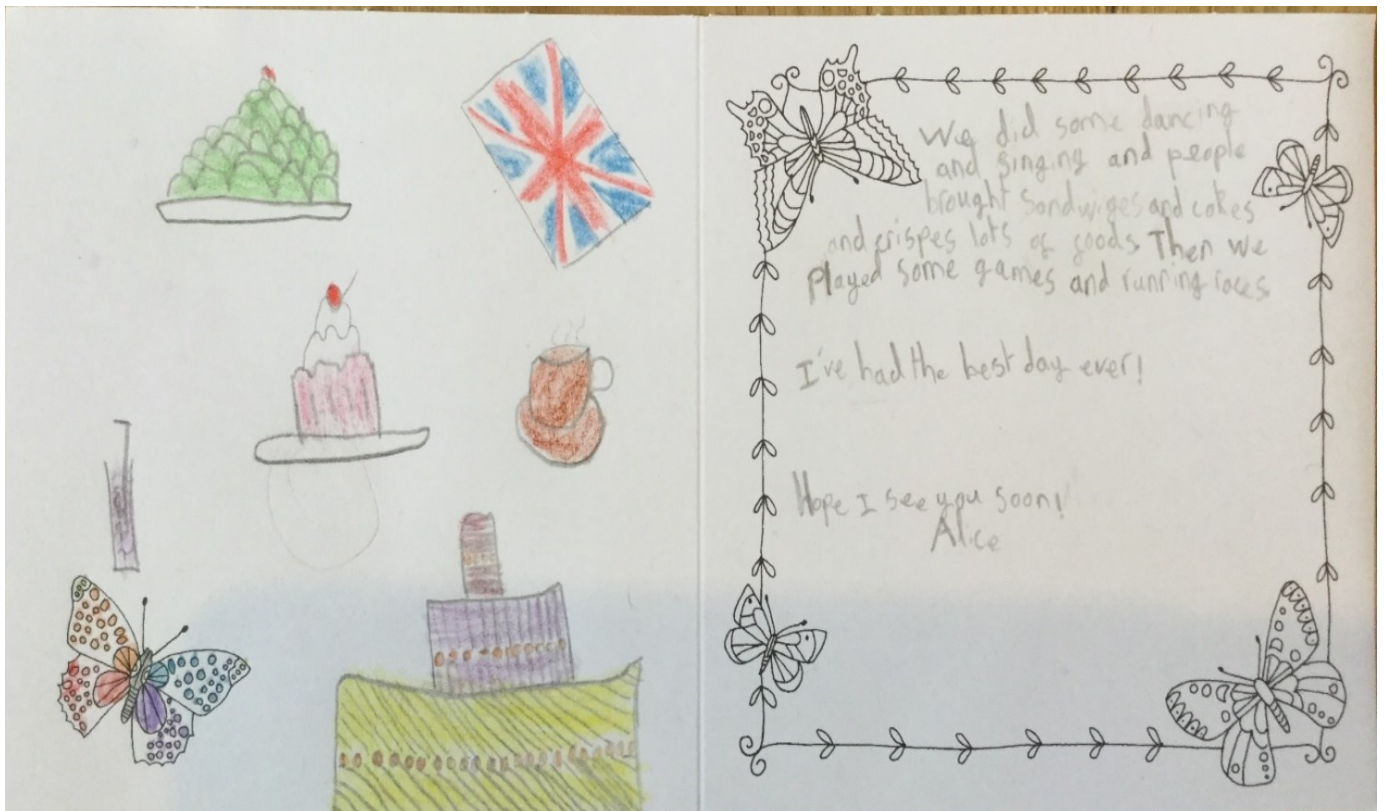 We did some dancing
and singing and people
brought sandwiges and cakes
and crispes lots of goods. Then we
Played some games and running races.
I've had the best day ever!
Hope I see you soon!
Alice